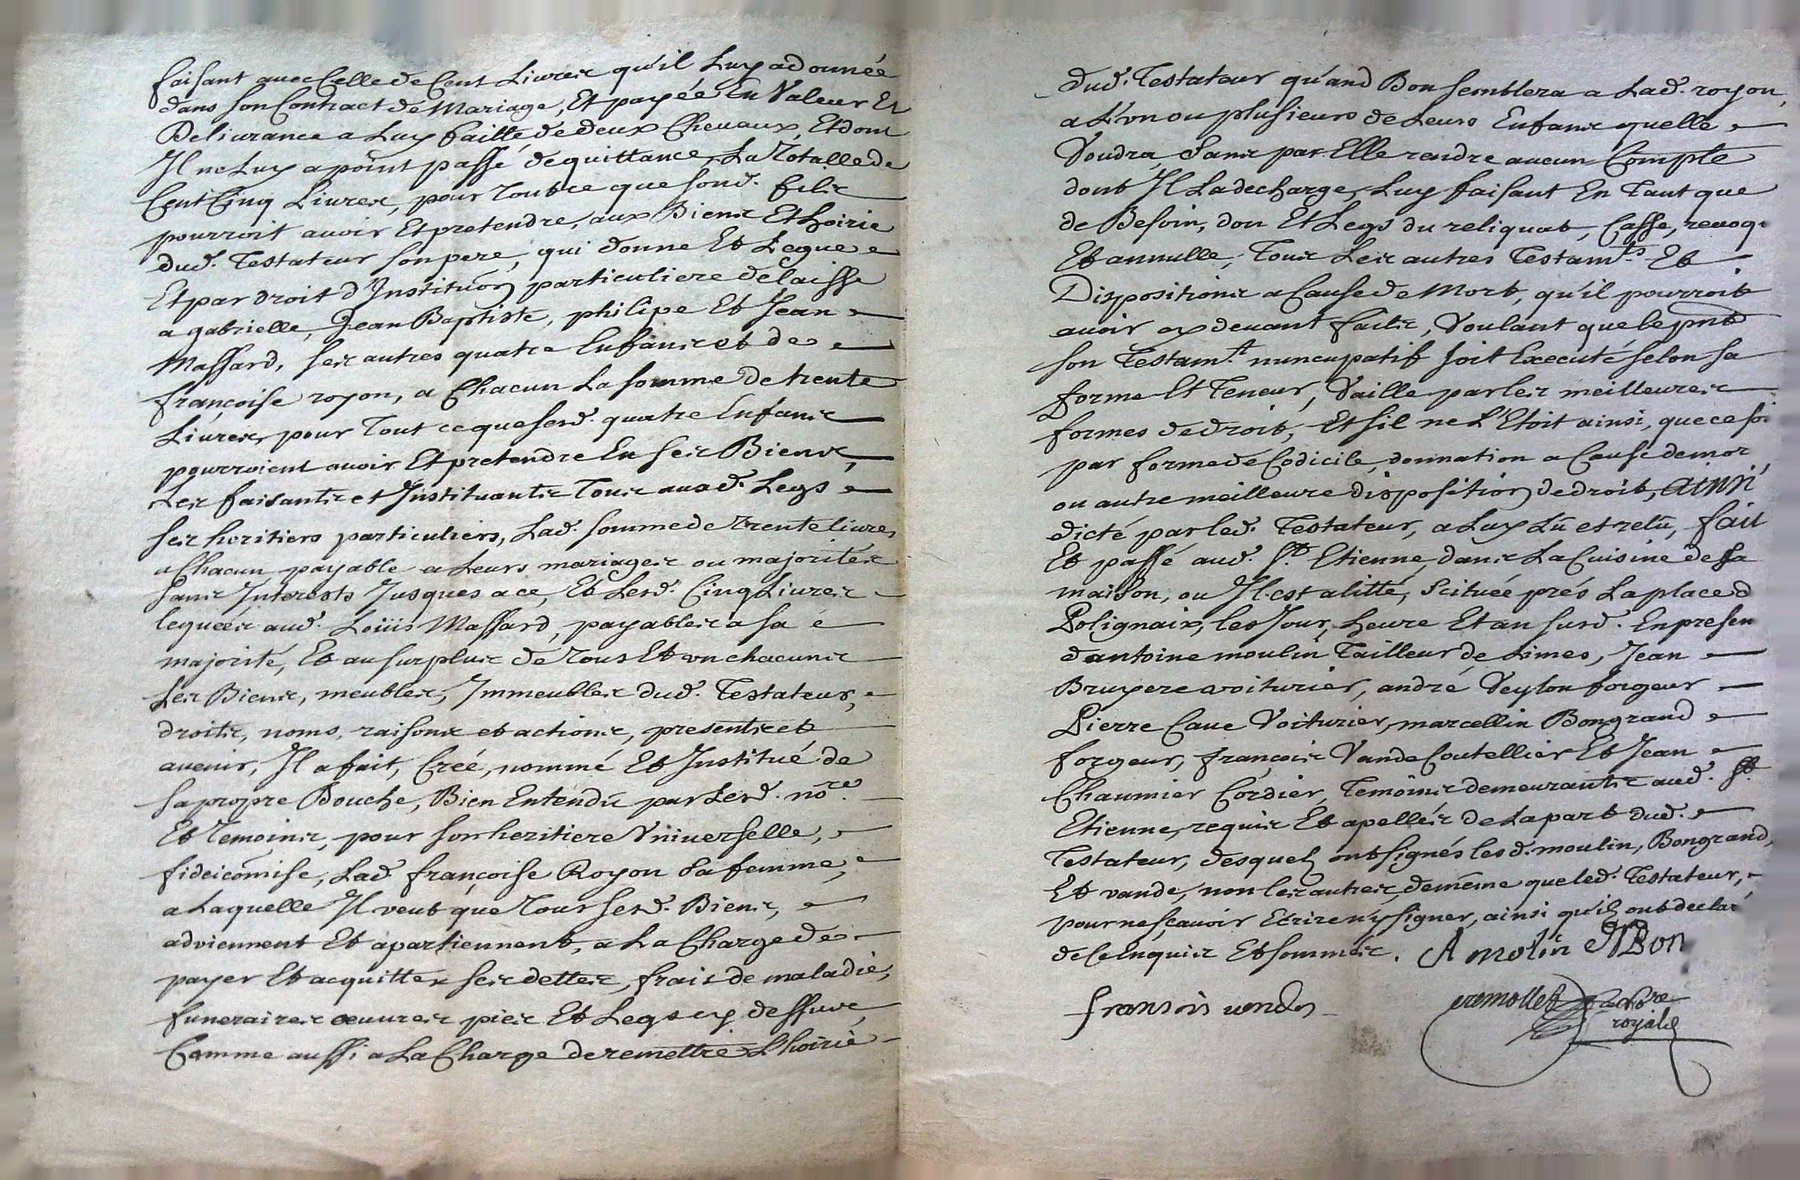 faisant avec Celle de Cent Livres qu'il Luy a donnée
dans son Contract de Mariage, Et payée En Valeur Et
Delivrance a Luy faitte de deux Chevaux, Et dont
Il ne Luy a point passé de quittance, La Totalle de
Cent Cinq Livres, pour tout ce que sond. fils
pourroit avoir Et pretendre, aux Biens Et hoirie
dud. Testateur son pere, qui donne Et Legue
Et par droit d'Institution particuliere delaisse
a gabrielle, Jean Baptiste, philipe Et Jean
Massard, ses autres quatre Enfans et de
françoise royon, a Chacun La somme de trente
Livres, pour Tout ce que sesd. quatre Enfans
pourroient avoir Et pretendre En ses Biens,
Les faisants et Instituants Tous auxd. Legs
ses heritiers particuliers, Lad. somme de trente livres
a Chacun payable a Leurs mariages ou majorités
sans Interests Jusques a ce, Et Lesd. Cinq Livres
leguées aud. Loüis Massard, payables a sa
majorité, Et au surplus de Tous Et vn chacuns
Les Biens, meubles, Immeubles dud. Testateur,
droits, noms, raisons et actions, presents et
avenir, Il a fait, Créé, nommé Et Institué de
sa propre Bouche, Bien Entendu par Lesd. nore.
Et Temoins, pour son heritiere Vniverselle,
fideicomise, Lad. françoise Royon sa femme,
a Laquelle Il veut que Tous sesd. Biens,
adviennent Et apartiennent, a La Charge de
payer Et acquitter ses dettes, frais de maladie,
funeraires œuvres pies Et Legs cy dessus,
Comme aussi a La Charge de remettre L'hoirie
dud. Testateur quand Bon semblera a Lad. royon,
a L'vn ou plusieurs de Leurs Enfans quelle
Voudra, sans par Elle rendre aucun Compte
dont Il La decharge, Luy faisant En Tant que
de Besoin, don Et Legs du reliquat, Casse, revoq.
Et annulle, Tous Les autres Testamts. Et
Dispositions a Cause de Mort, qu'il pourroit
avoir cy devant faits, Voulant que le pnt
son Testamt. nuncupatif soit Executé selon sa
forme Et Teneur, Vaille par les meilleures
formes de droit, Et sil ne L'Etoit ainsi, que ce soi
par forme de Codicile, donnation a Cause de mor
ou autre meilleure disposition de droit, ainsi
dicté par led. Testateur, a Luy Lû et relû, fait
Et passé aud. St. Etienne, dans La Cuisine de sa
maison, ou Il est alitté, scituée prés La place d
Polignaix, les Jour, heure Et an susd. En presen
d'antoine moulin Tailleur de Limes, Jean
Bruyere voiturier, andré Veylon forgeur
Pierre Cave Voiturier, marcellin Bongrand
forgeur, françois Vande Coutellier Et Jean
Chaumier Cordier, Temoins demeurants aud. St
Etienne, requis Et apellés de La part dud.
Testateur, desquels ont signés lesd. moulin, Bongrand,
Et vande, non les autres, de même que led. Testateur,
pour ne sçavoir Ecrire ny signer, ainsi qu'ils ont declaré
de Ce Enquis Et sommés. A molin M Bon
fransois vande
royal